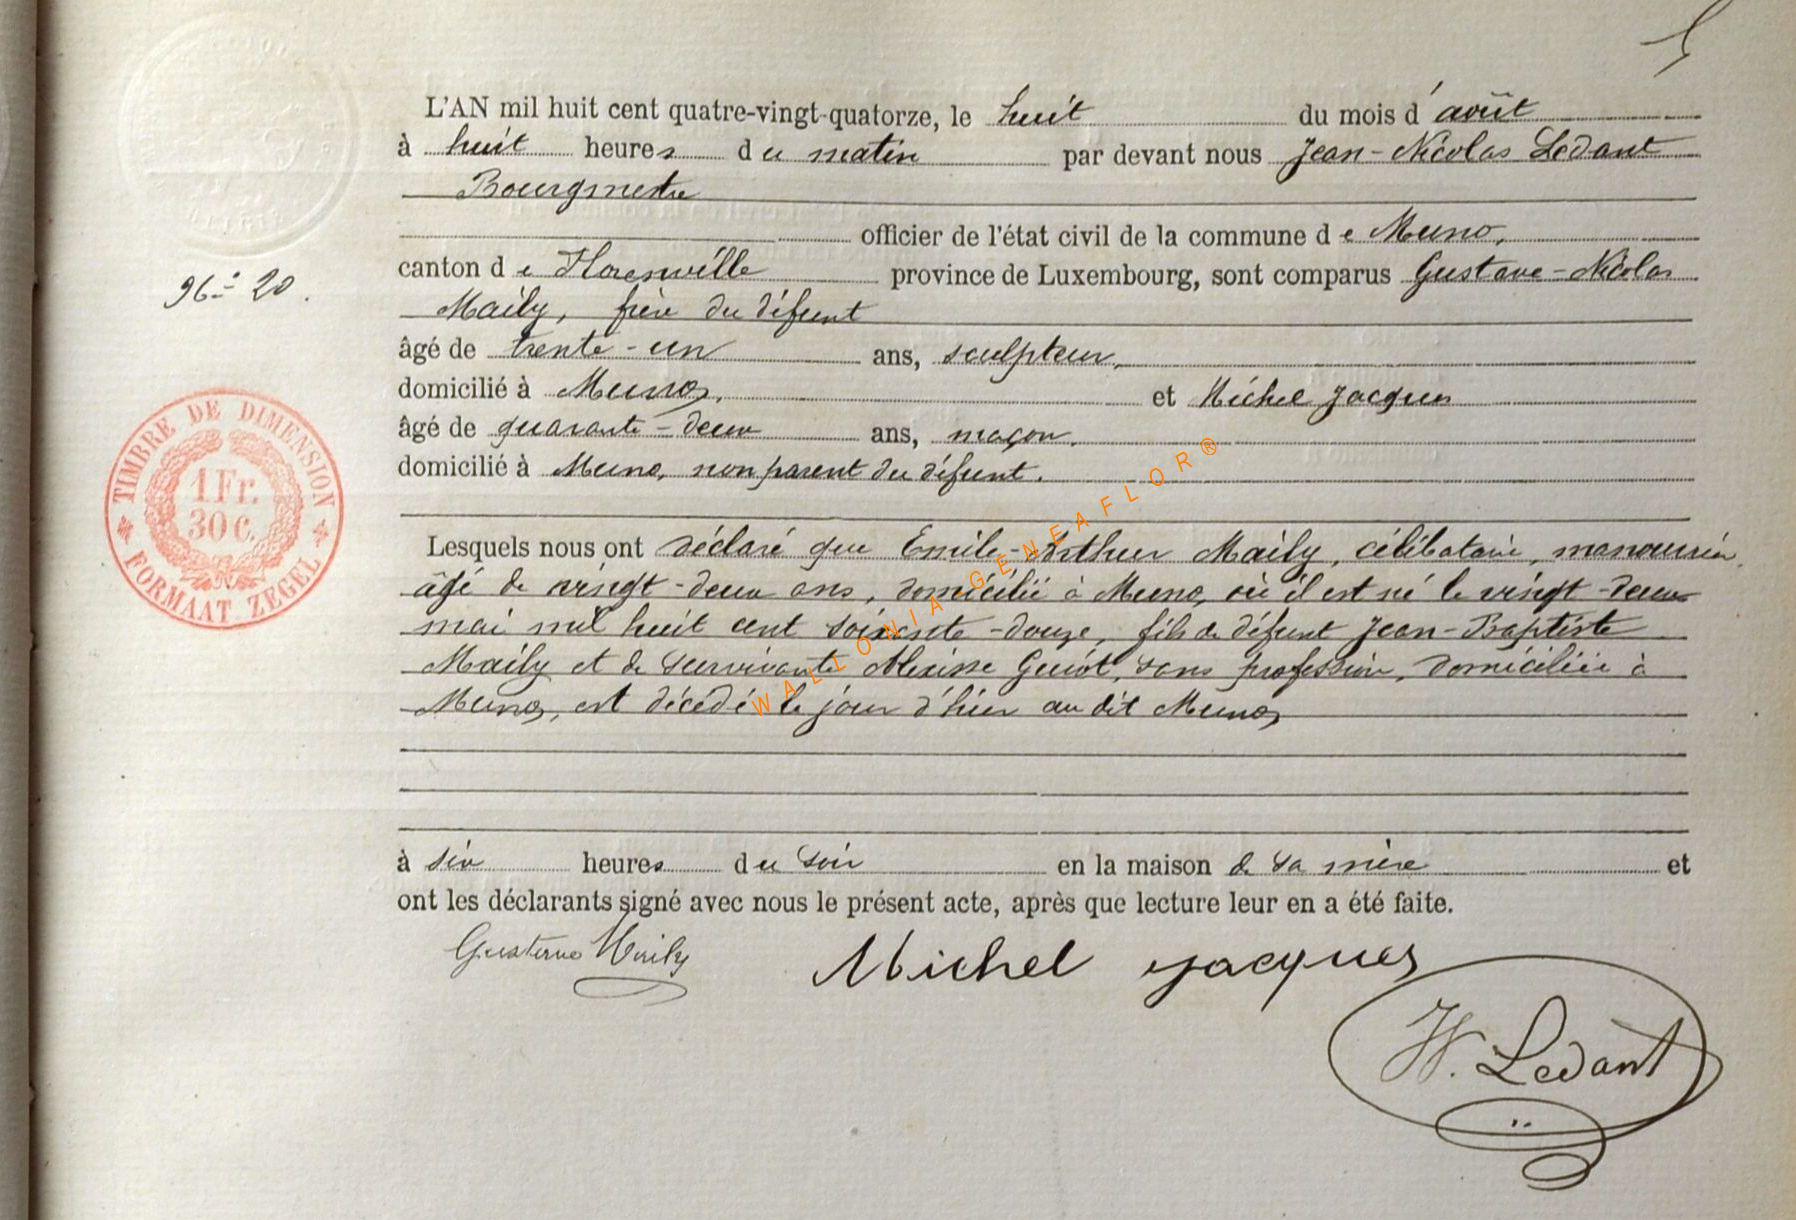 5
L'AN mil huit cent quatre-vingt-quatorze, le huit du mois d'août
à huit heures du matin par devant nous Jean-Nicolas Ledant
Bourgmestre
officier de l'état civil de la commune de Muno,
canton de Florenville province de Luxembourg, sont comparus Gustave-Nicolas
96=20.
Maily, frère du défunt
âgé de trente-un ans, sculpteur,
domicilié à Muno, et Michel Jacques
âgé de quarante-deux ans, maçon,
domicilié à Muno, non parent du défunt.
TIMBRE DE DIMENSION
1 Fr.
30 C.
FORMAAT ZEGEL
Lesquels nous ont déclaré que Emile-Arthur Maily, célibataire, manouvrier,
âgé de vingt-deux ans, domicilié à Muno, où il est né le vingt-deux
mai mil huit cent soixante-douze, fils de défunt Jean-Baptiste
Maily et de survivante Alexisse Guiot, sans profession, domiciliée à
Muno, est décédé le jour d'hier au dit Muno
à six heures du soir en la maison de sa mère et
ont les déclarants signé avec nous le présent acte, après que lecture leur en a été faite.
Gustave Maily Michel Jacques
Ledant
WALLONIA-GENEAFLOR®